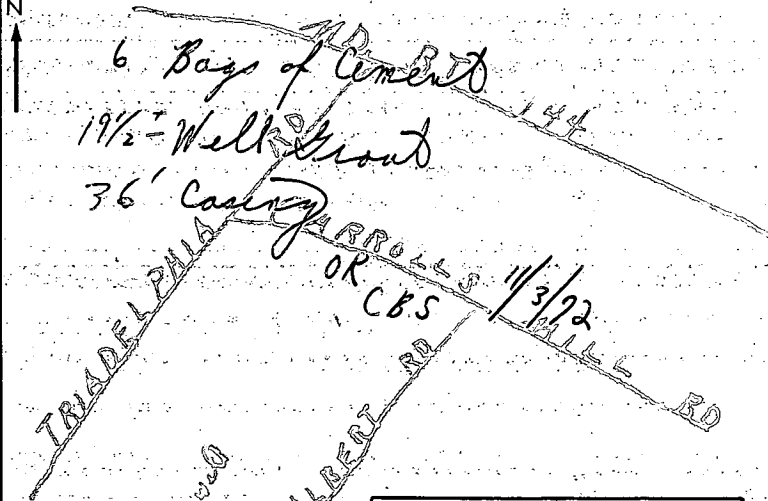 N
MD. RT 144
6 Bags of Cement
19½' Well Grout
36' Casing
TRIADELPHIA RD
CARROLLS MILL RD
OK
CBS 11/3/72
ALBERT RD